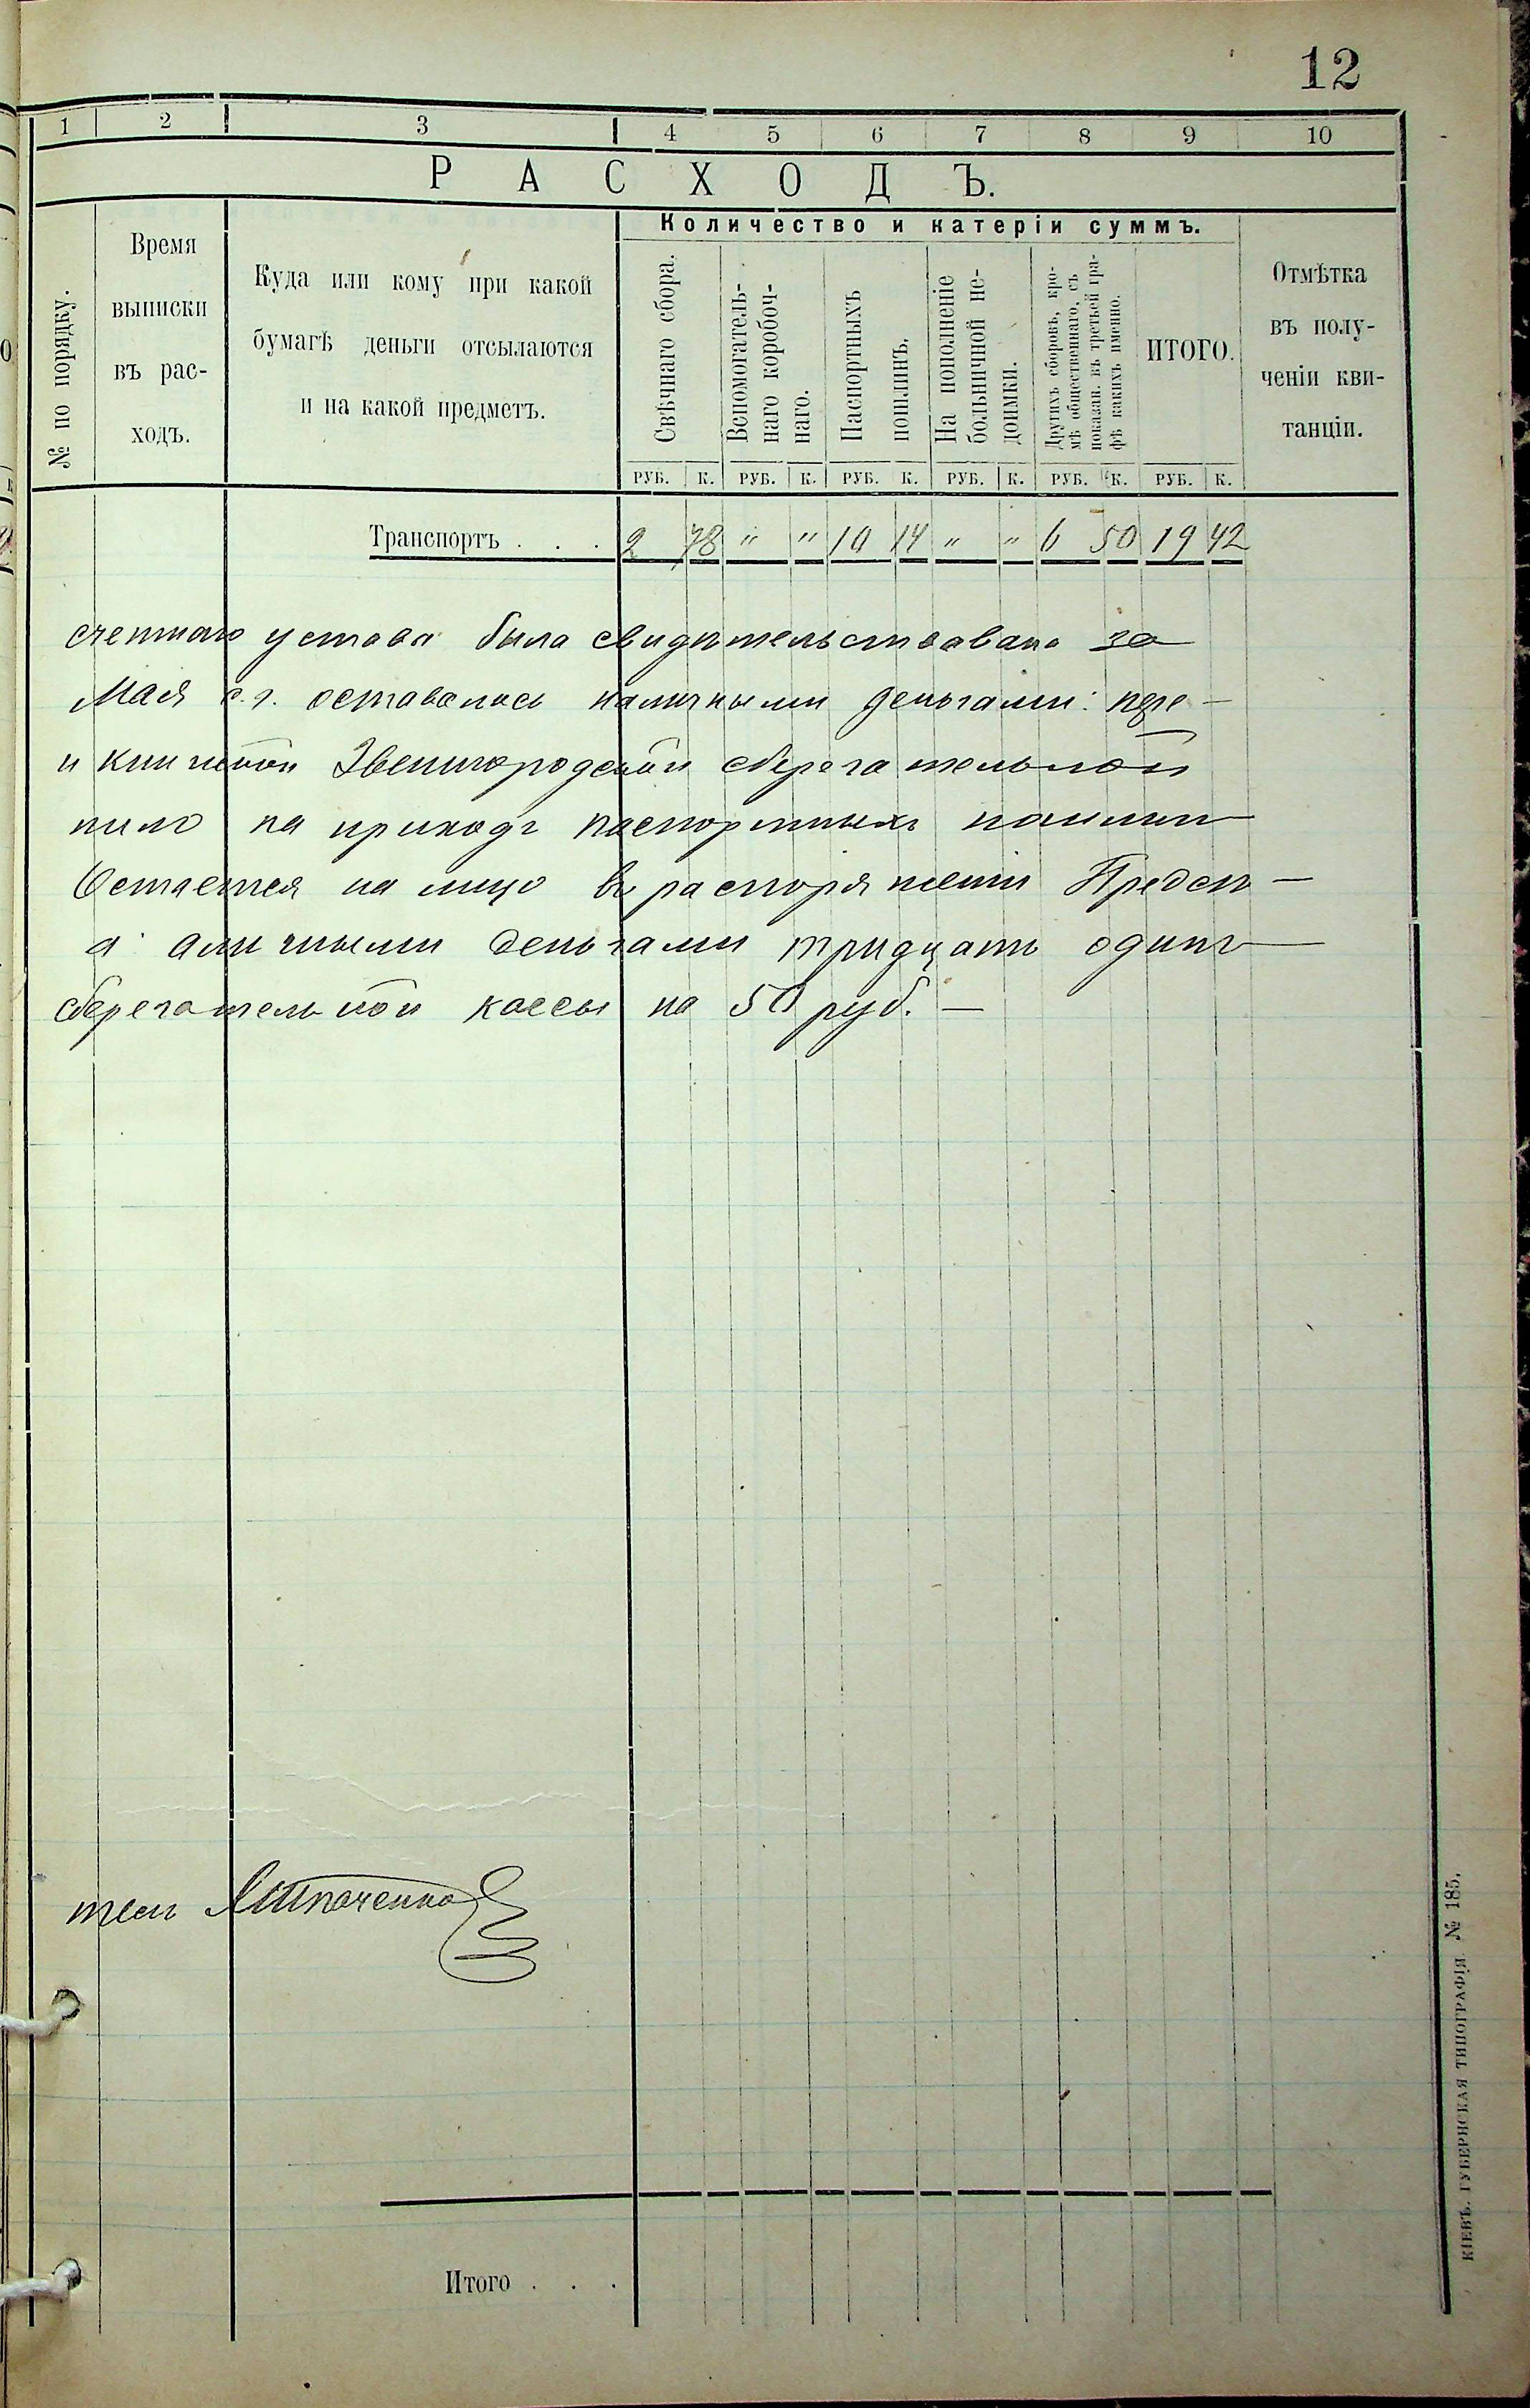 12
1 2 3 4 5 6 7 8 9 10
РАСХОДЪ.
№ по порядку.
Время
выписки
въ рас-
ходъ.
Куда или кому при какой
бумагѣ деньги отсылаются
и на какой предметъ.
Количество и катеріи суммъ.
Свѣчнаго сбора.
Вспомогатель-
наго коробоч-
наго.
Паспортныхъ
пошлинъ.
На пополненіе
больничной не-
доимки.
Другихъ сборовъ, кро-
мѣ общественнаго, съ
показан. въ третьей гра-
фѣ какихъ именно.
ИТОГО.
Отмѣтка
въ полу-
ченіи кви-
танціи.
РУБ. К. РУБ. К. РУБ. К. РУБ. К. РУБ. К. РУБ. К.
Транспортъ . . . 2 78 " " 10 14 " " 6 50 19 42
счетнаго устава была свидѣтельствована за
Мая с.г. оставалось наличными деньгами: пере-
и книжкой Звенигородской сберегательной
пило на приходъ паспортныхъ пошлин
Остается на лицо въ распоряженіи Предсѣ-
а аличными деньгами тридцать одинъ
сберегательной кассы на 50 руб. —
тель
Итого . . .
КІЕВЪ. ГУБЕРНСКАЯ ТИПОГРАФІЯ № 185.